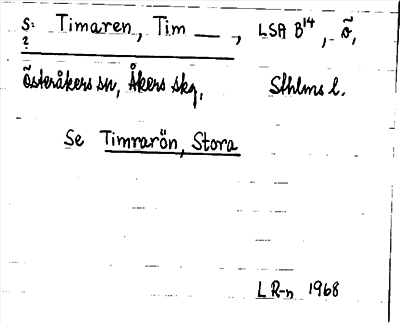 S: Timaren, Tim — , LSA B14, ö,
2
Österåkers sn, Åkers skg, Sthlms l.
Se Timrarön, Stora
L R-n 1968